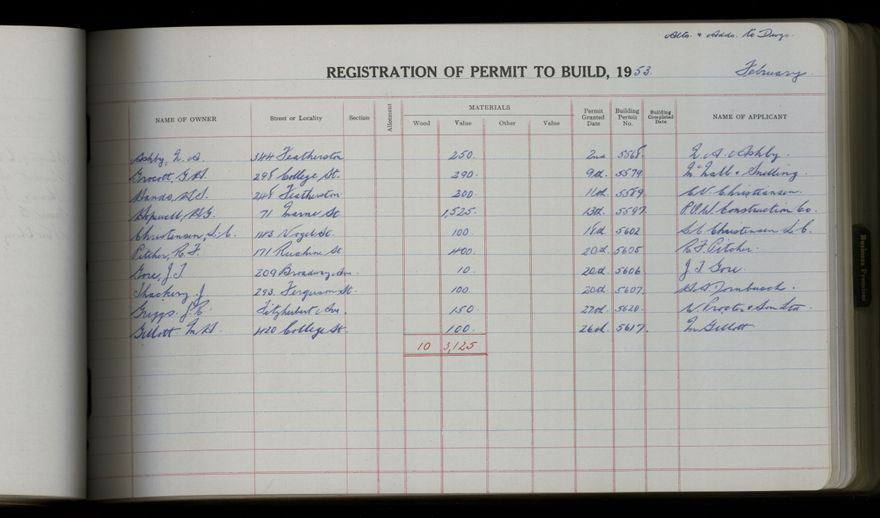 Alts. & Adds. to Dwgs.
REGISTRATION OF PERMIT TO BUILD, 1953.
February.
NAME OF OWNER Street or Locality Section Allotment MATERIALS Permit Granted Date Building Permit No. Building Completed Date NAME OF APPLICANT
Wood Value Other Value
Ashby, 344 Featherston 250. 2nd 5568. Ashby.
Grocott, 298 College St. 290. 9th. 5579 & Snelling.
Hands, 248 Featherston 300 11th 5589 Christiansen.
71 Marne St 1,525. 13th. 5597 Construction Co.
Christensen, L.C. 143 Vogel St. 100. 16th 5602 Christensen L.C.
Pitcher, R.F. 171 Ruahine St 400. 20th 5605 R.F. Pitcher.
Gore, J.T 209 Broadway Ave. 10. 20th. 5606 J T Gore.
Thackery J 293. Ferguson St. 100 20th 5607. Dornbusch.
Griggs. J.C. Fitzherbert Ave. 150. 27th. 5620. W. Procter & Son Ltd
Gillott M.H. 420 College St. 100. 26th. 5617. M Gillott
10 3,125
Business Premises